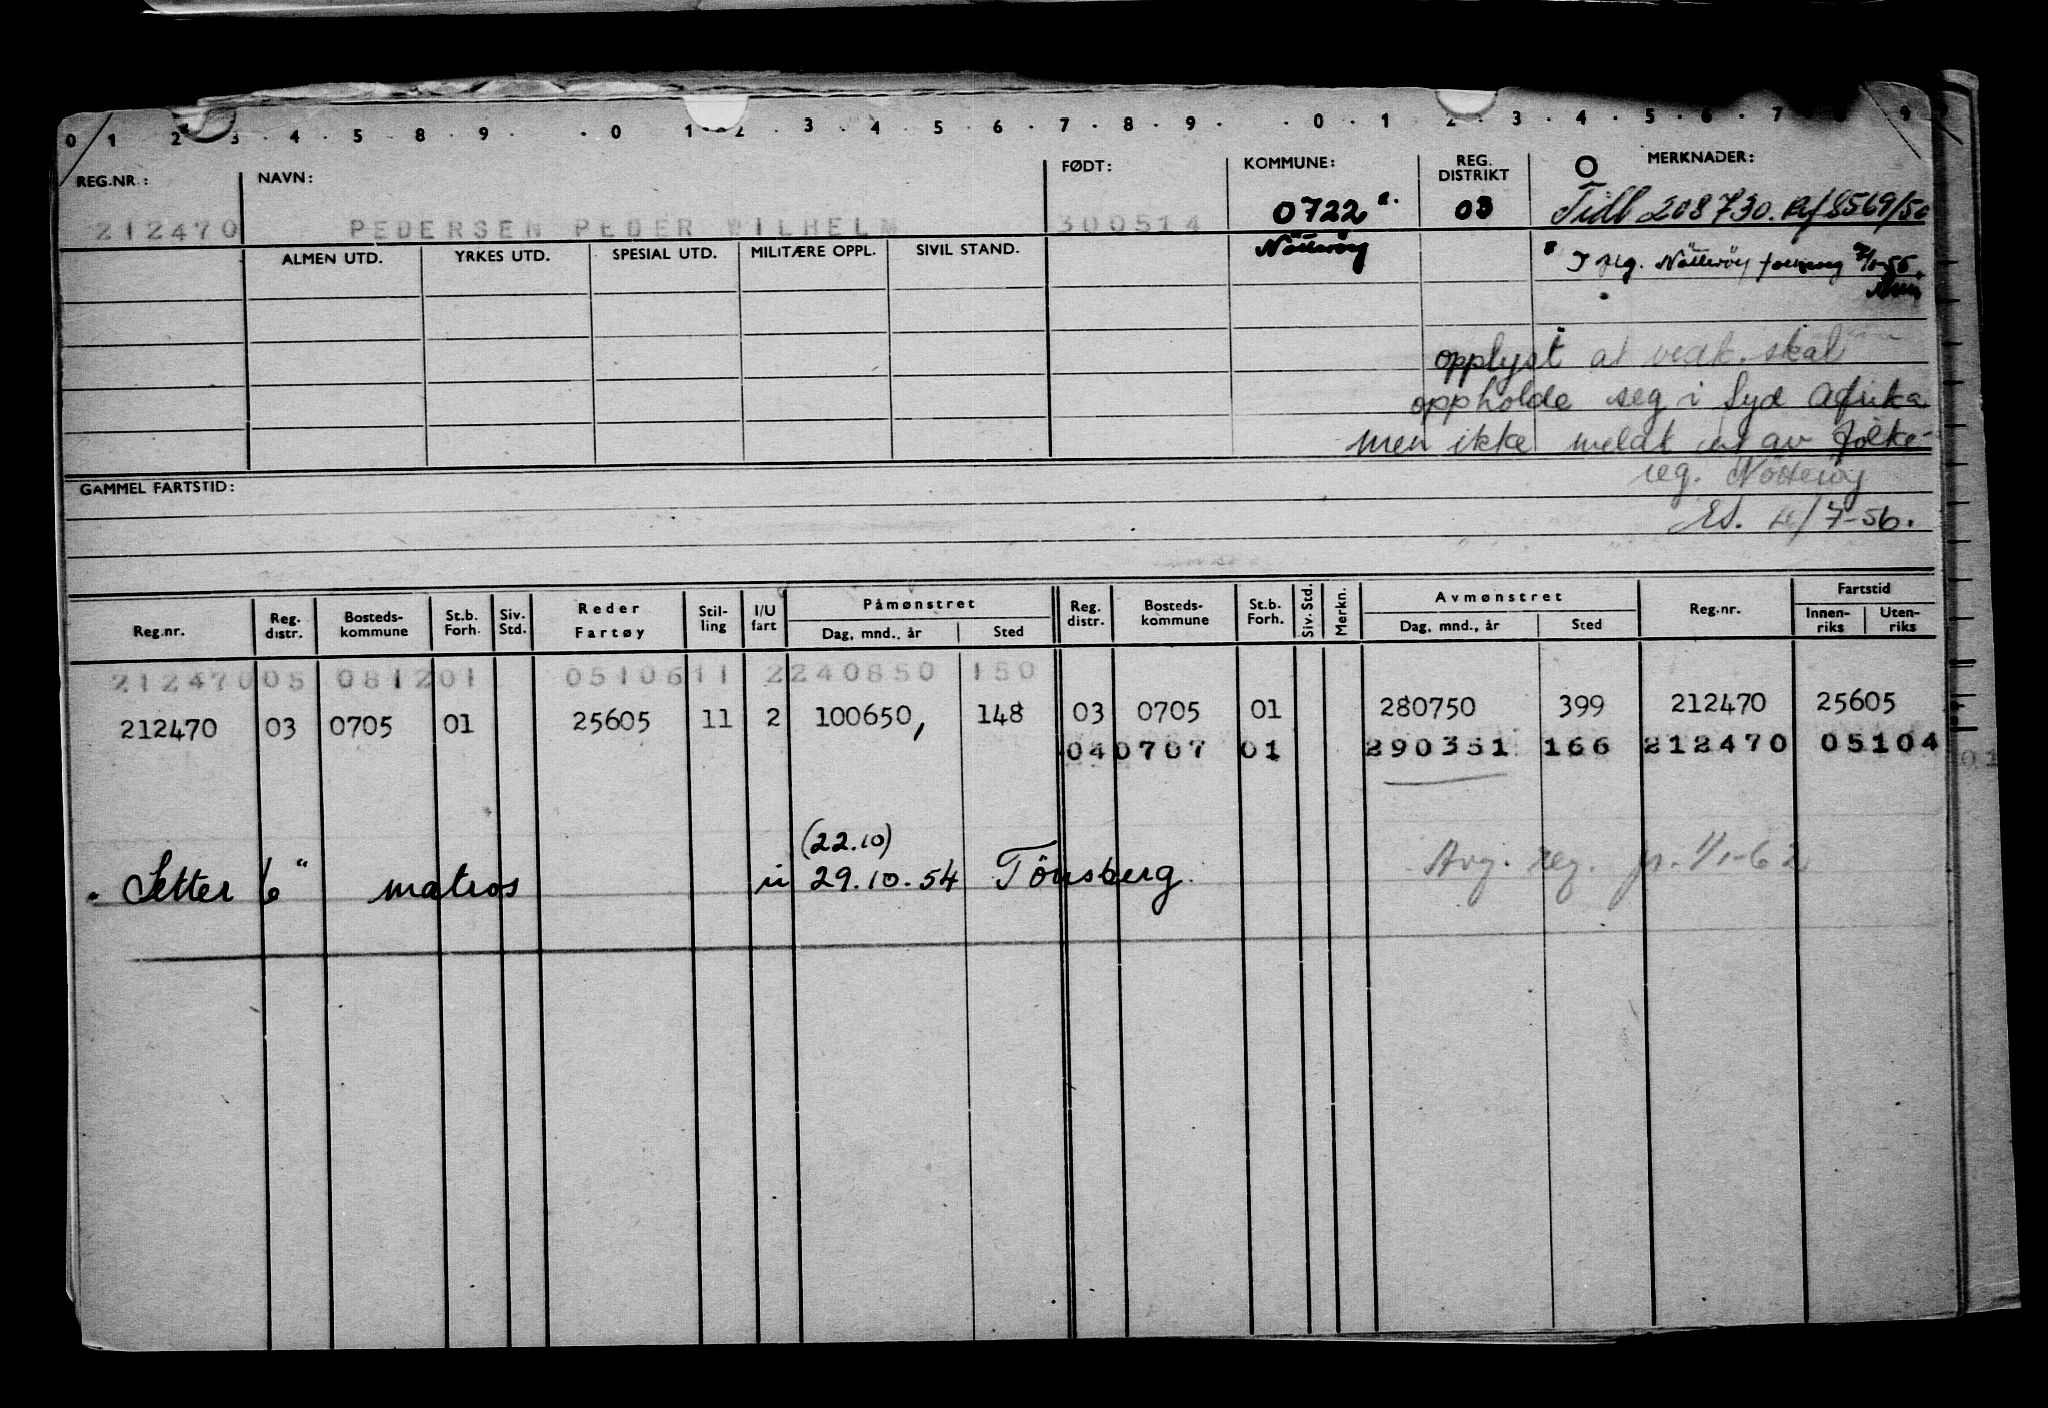 0 1 2 3 . 4 . 5 . 8 . 9 . . 0 . 1 . 2 . 3 . 4 . 5 . 6 . 7 . 8 . 9 . . 0 . 1 . 2 . 3 . 4 . 5 . 6 . 7 . 8 . 9
REG.NR.: NAVN: FØDT: KOMMUNE: REG. DISTRIKT MERKNADER:
212470 PEDERSEN PEDER WILHELM 300514 0722 a. 03 Tidl 208730. Rf 8569/50
Nötteröy
ALMEN UTD. YRKES UTD. SPESIAL UTD. MILITÆRE OPPL. SIVIL STAND.
I reg. Nötteröy folkereg
opplyst at vedk. skal
oppholde seg i Syd Afrika
men ikke meldt ut av folke-
reg. Nötteröy
GAMMEL FARTSTID:
/7-56.
Reg.nr. Reg. distr. Bosteds-kommune St.b. Forh. Siv. Std. Reder Fartøy Stil-ling I/U fart Påmønstret Dag, mnd., år Sted Reg. distr. Bosteds-kommune St.b. Forh. Siv. Std. Merkn. Avmønstret Dag, mnd., år Sted Reg.nr. Fartstid Innen-riks Uten-riks
212470 05 0812 01 05106 11 2 240850 150
212470 03 0705 01 25605 11 2 100650, 148 03 0705 01 280750 399 212470 25605
04 0707 01 290351 166 212470 05104
01
(22.10)
Setter 6" matros u 29.10.54 Tönsberg. Avg. reg. pr. 1/1-62